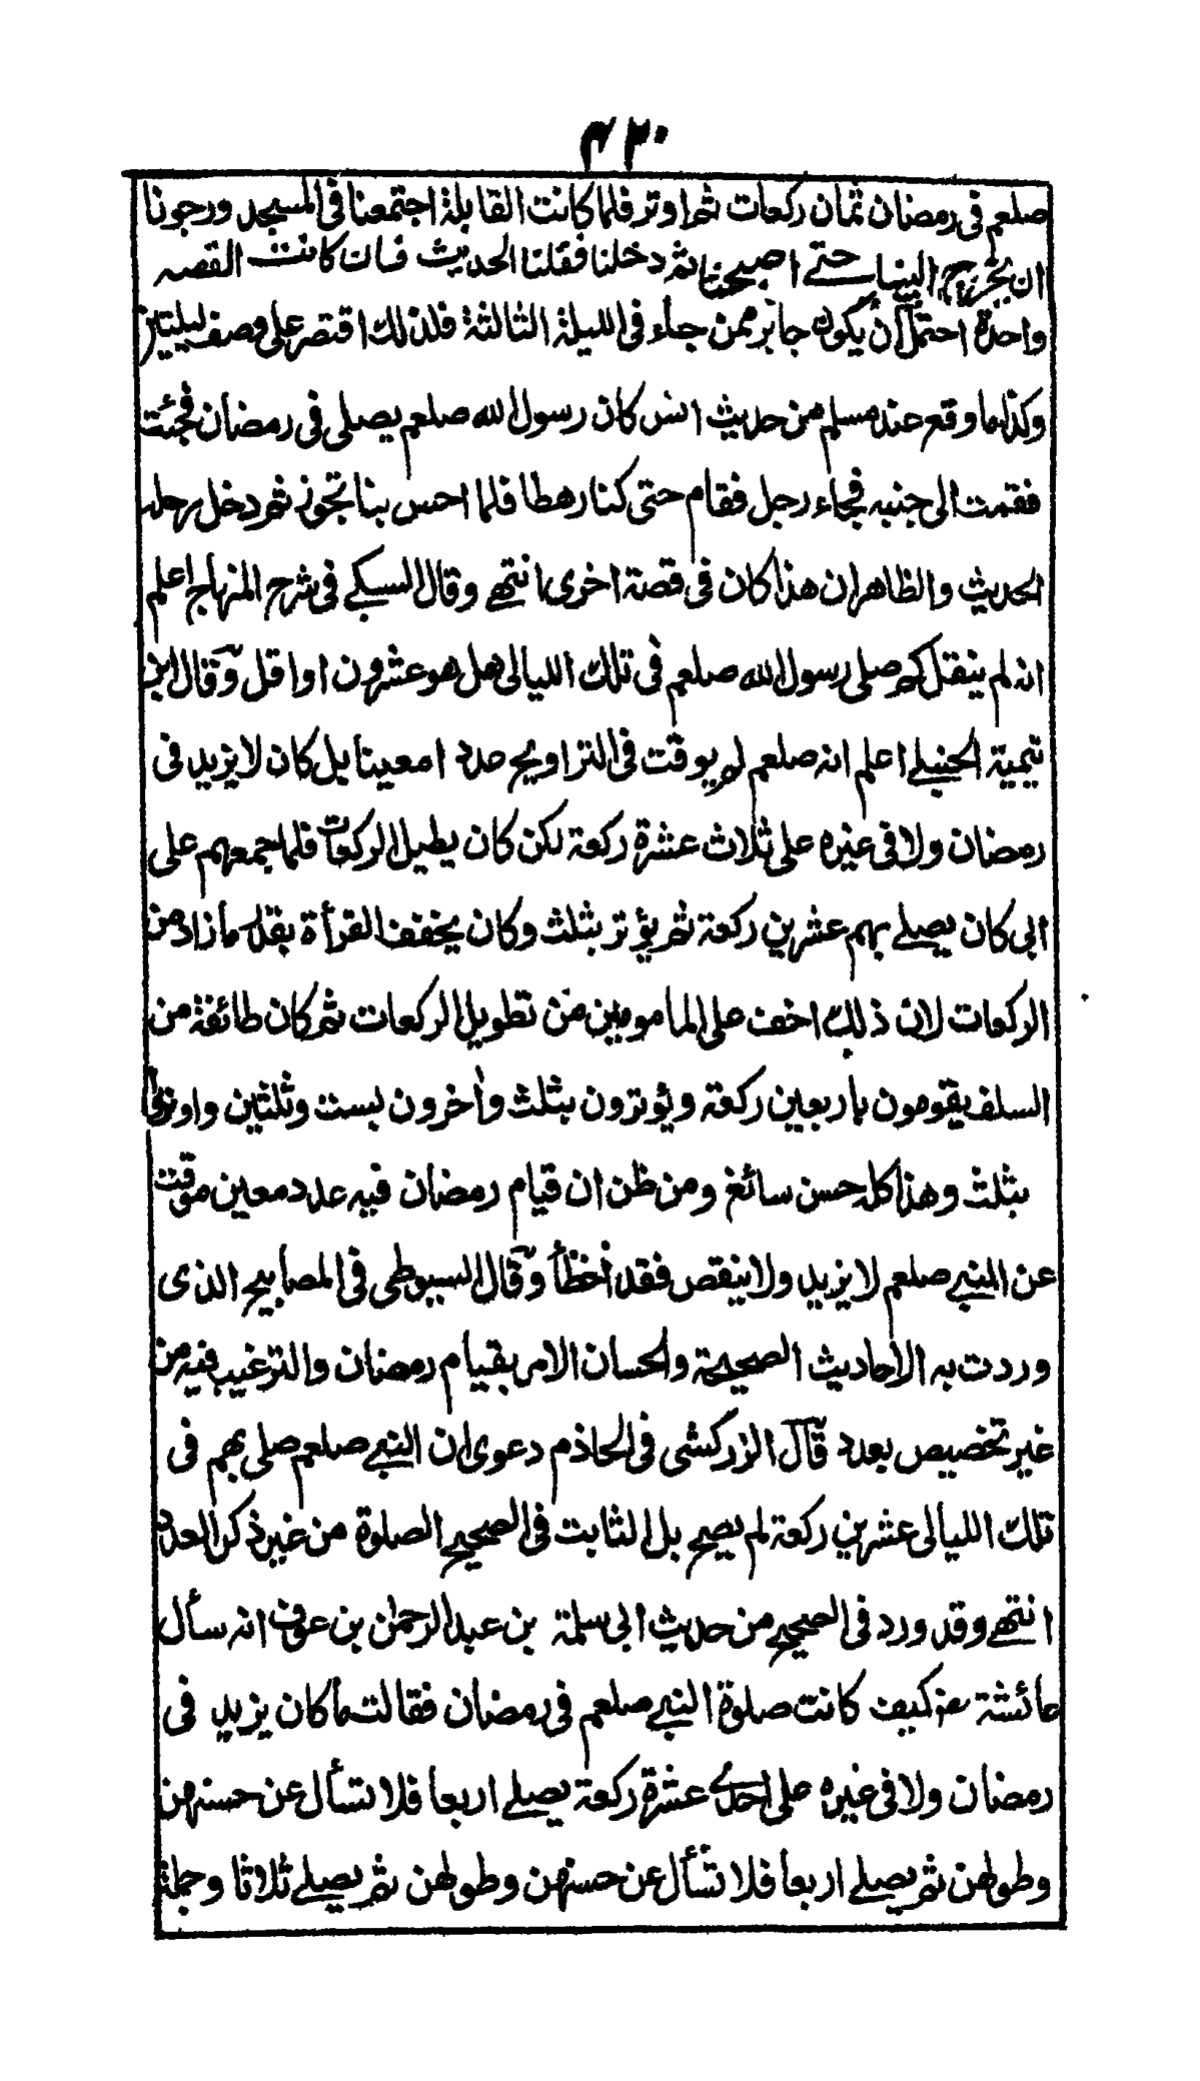 ٤٢٠
صلعم فى رمضان ثمان ركعات ثم اوتر فلما كانت القابلة اجتمعنا فى المسجد ورجونا
ان يخرج الينا حتے اصبحنا ثم دخلنا فقلنا الحديث فان كانت القصه
واحدة احتمل ان يكون جابر ممن جاء فى الليلة الثالثة فلذلك اقتصر على وصف ليلتين
وكذا ما وقع عند مسلم من حديث انس كان رسول الله صلعم يصلى فى رمضان فجئت
فقمت الى جنبه فجاء رجل فقام حتى كنا رهطا فلما احس بنا تجوز ثم دخل رحله
الحديث والظاهر ان هذا كان فى قصة اخرى انتهے وقال السبكے فى شرح المنهاج اعلم
انه لم ينقل كم صلى رسول الله صلعم فى تلك الليالى هل هو عشرون او اقل وقال ابن
تيمية الحنبلے اعلم انه صلعم لم يوقت فى التراويح عددا معينا بل كان لا يزيد فى
رمضان ولا فى غيره على ثلاث عشرة ركعة لكن كان يطيل الركعات فلما جمعهم على
ابى كان يصلے بهم عشرين ركعة ثم يؤتر بثلث وكان يخفف القرأة بقدر ما زاد من
الركعات لان ذلك اخف على المامومين من تطويل الركعات ثم كان طائفة من
السلف يقومون باربعين ركعة ويؤترون بثلث وأخرون بست وثلثين واوتروا
بثلث وهذا كله حسن سائغ ومن ظن ان قيام رمضان فيه عدد معين موقت
عن النبے صلعم لا يزيد ولا ينقص فقد أخطأ وقال السيوطى فى المصابيح الذى
وردت به الاحاديث الصحيحة والحسان الامر بقيام رمضان والترغيب فيه من
غير تخصيص بعدد قال الزركشى فى الخادم دعوى ان النبے صلعم صلى بهم فى
تلك الليالى عشرين ركعة لم يصح بل الثابت فى الصحيح الصلوة من غير ذكر العدد
انتهے وقد ورد فى الصحيح من حديث ابى سلمة بن عبد الرحمن بن عوف انه سأل
عائشة رض كيف كانت صلوة النبے صلعم فى رمضان فقالت ما كان يزيد فى
رمضان ولا فى غيره على احدے عشرة ركعة يصلے اربعا فلا تسأل عن حسنهن
وطولهن ثم يصلے اربعا فلا تسأل عن حسنهن وطولهن ثم يصلے ثلاثا وجملة